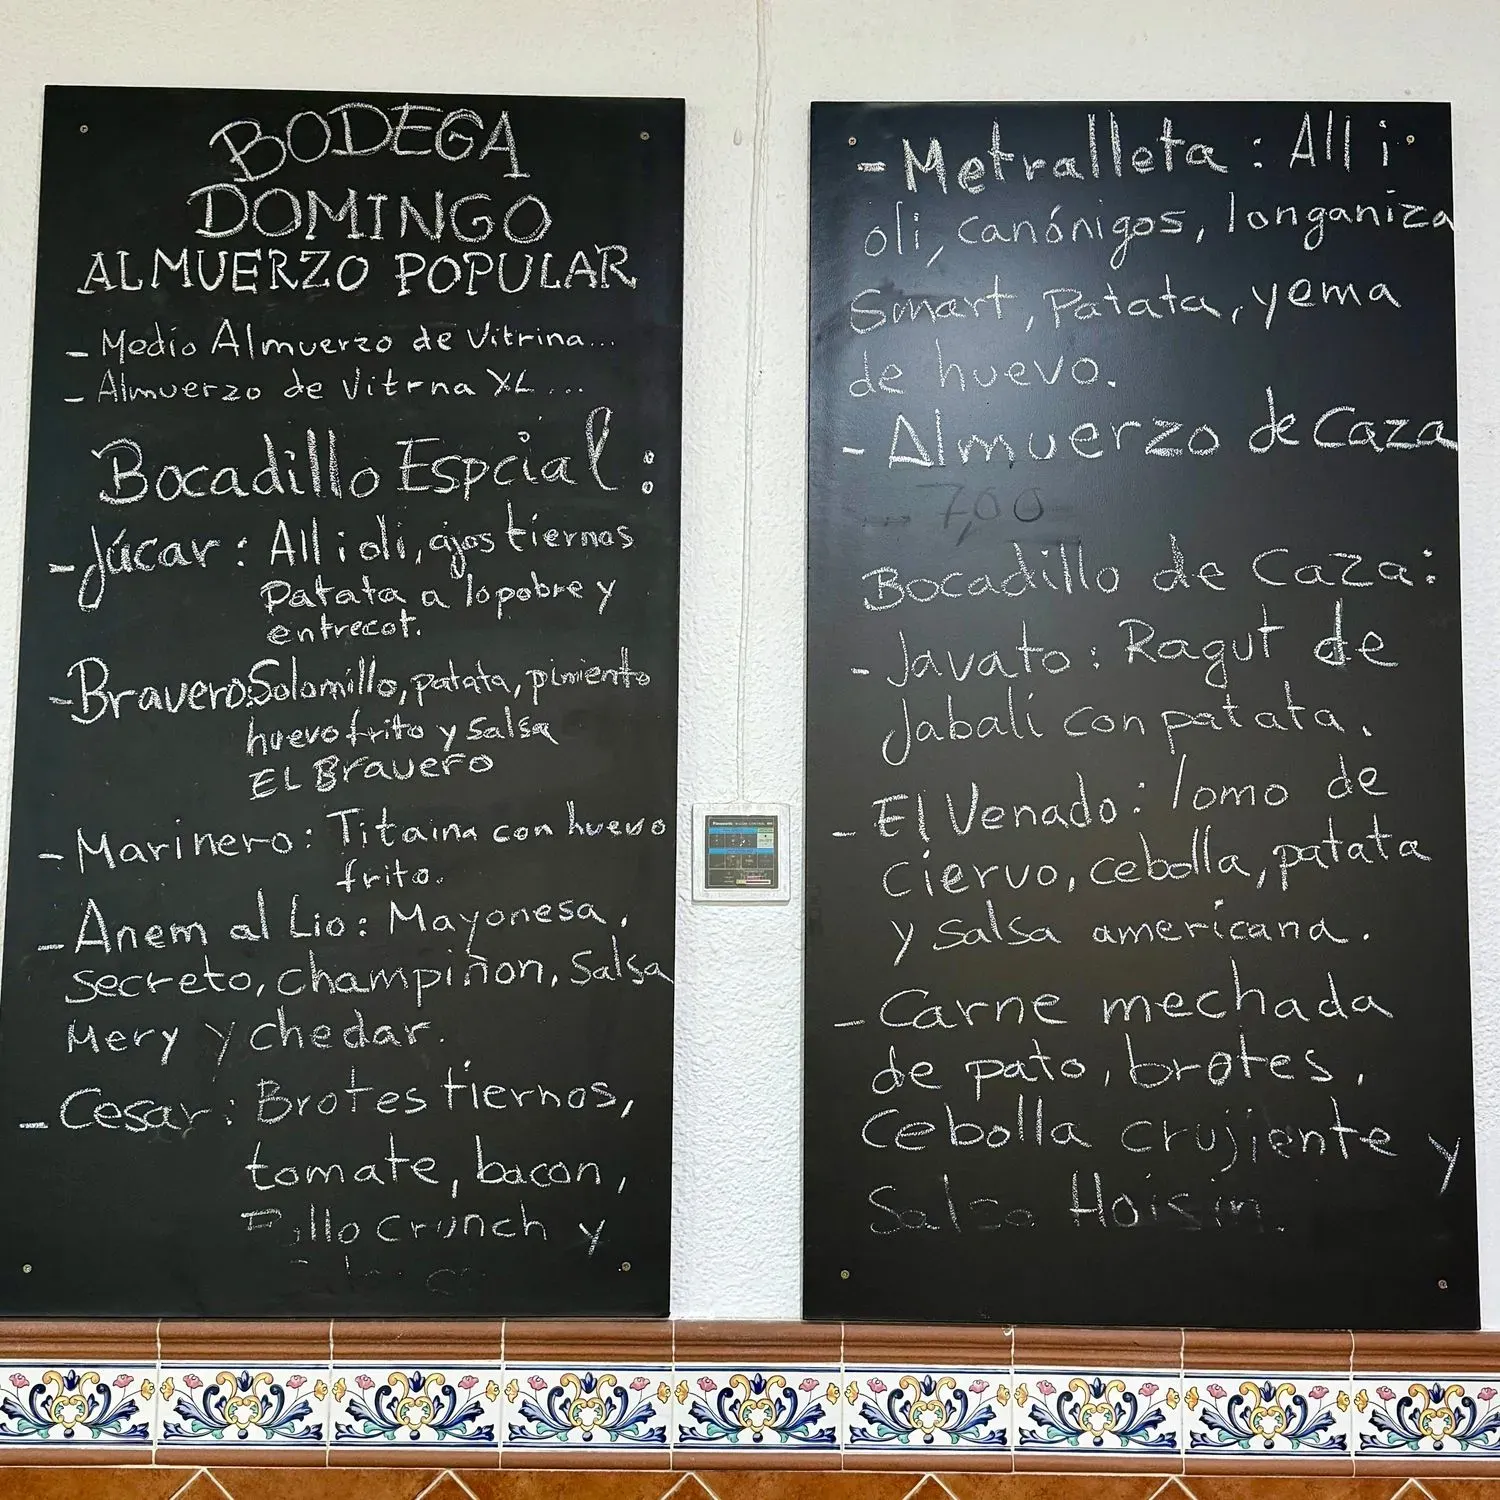 BODEGA
DOMINGO
ALMUERZO POPULAR
- Medio Almuerzo de Vitrina...
- Almuerzo de Vitrna XL ...
Bocadillo Espcial:
- Júcar: All i oli, ajos tiernos
Patata a lo pobre y
entrecot.
- Bravero: Solomillo, patata, pimiento
huevo frito y salsa
EL Bravero
- Marinero: Titaina con huevo
frito.
- Anem al Lio: Mayonesa,
secreto, champiñon, Salsa
Mery y chedar.
- Cesar: Brotes tiernos,
tomate, bacon,
Crunch y
- Metralleta: All i
oli, canónigos, longaniza
Smart, Patata, yema
de huevo.
- Almuerzo de Caza
... 7,00
Bocadillo de Caza:
- Javato: Ragut de
Jabalí con patata.
- El Venado: lomo de
Ciervo, cebolla, patata
y salsa americana.
- Carne mechada
de pato, brotes,
Cebolla crujiente y
Salsa Hoisin.
Panasonic